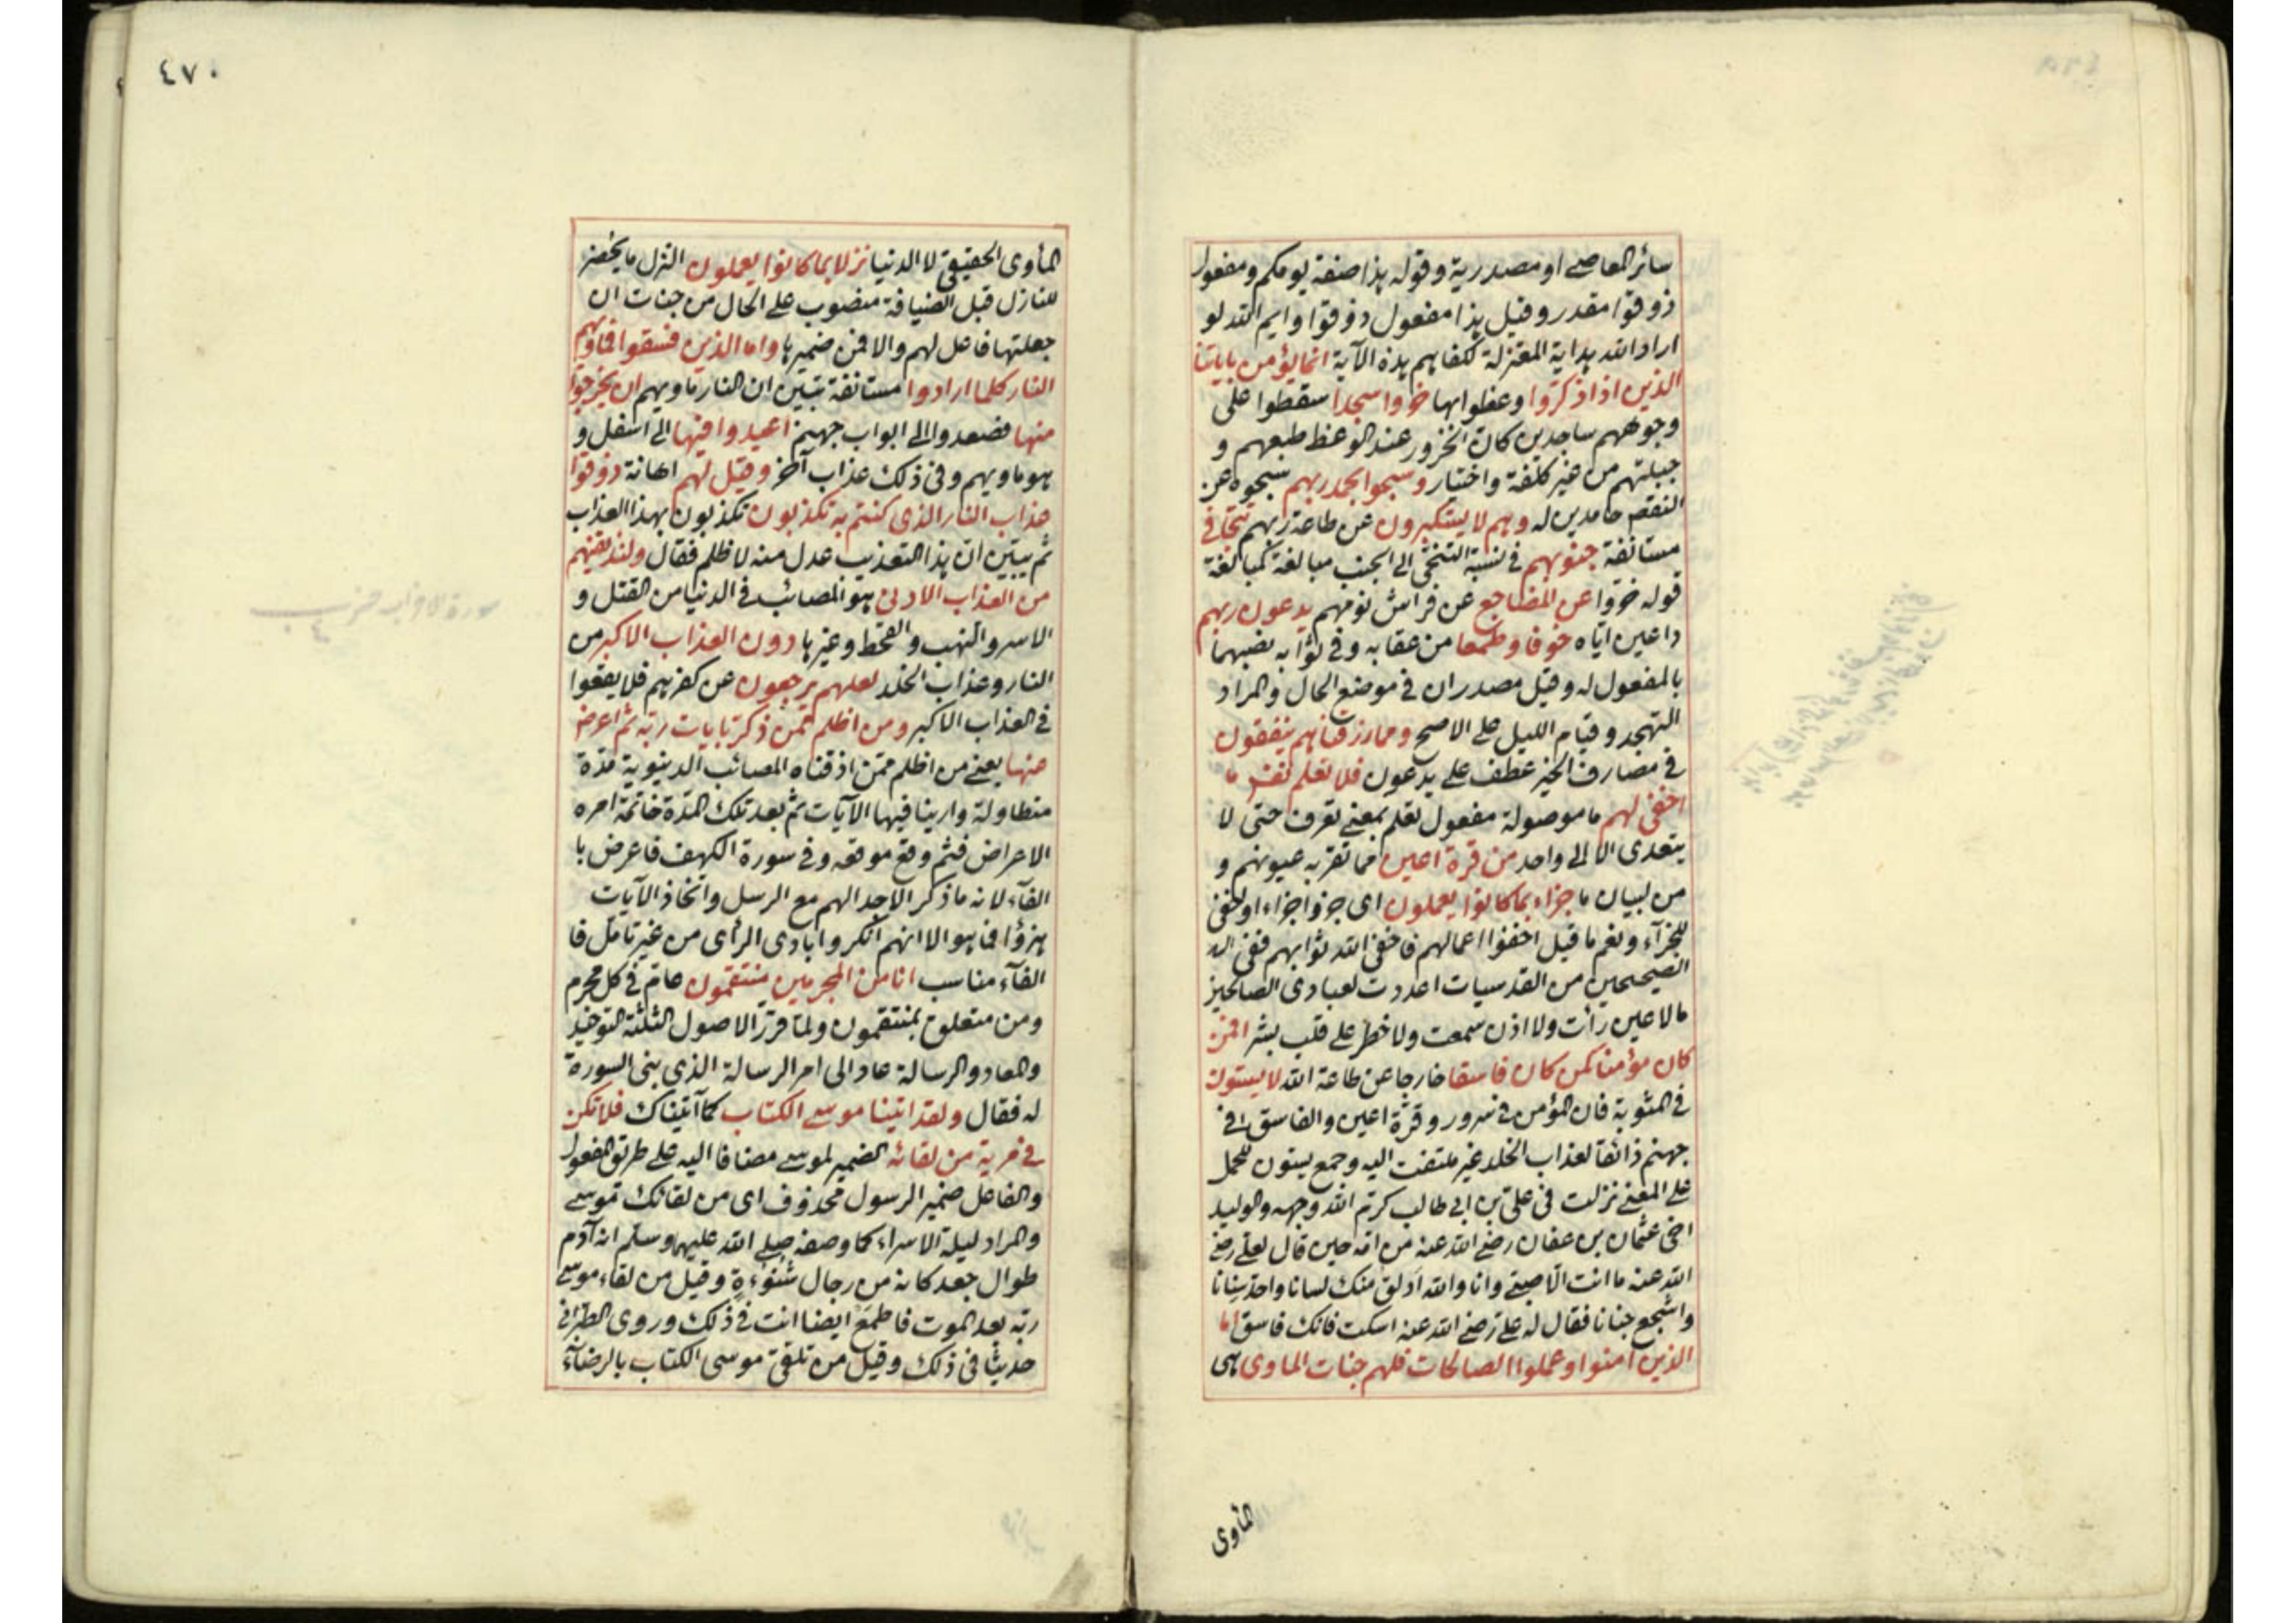 سائر المعاصى او مصدرية وقوله هذا صفة يومكم ومفعول
ذوقوا مقدر وقيل هذا مفعول ذوقوا وايم الله لو
اراد الله هداية المعتزلة لكفاهم هذه الآية انما يؤمن باياتنا
الذين اذا ذكروا وعظوا بها خروا سجدا سقطوا على
وجوههم ساجدين كان الخرور عند الوعظ طبعهم و
جبلتهم من غير كلفة واختيار وسبحوا بحمد ربهم سبحوه عن
النقص حامدين له وهم لا يستكبرون عن طاعة ربهم تتجافى
مستانفة جنوبهم فى نسبة التنحى الى الجنب مبالغة كمبالغة
قوله خروا عن المضاجع عن فراش نومهم يدعون ربهم
داعين اياه خوفا وطمعا من عقابه وفى ثوابه نصبهما
بالمفعول له وقيل مصدران فى موضع الحال والمراد
التهجد وقيام الليل على الاصح ومما رزقناهم ينفقون
فى مصارف الخير عطف على يدعون فلا تعلم نفس ما
اخفى لهم ما موصولة مفعول تعلم بمعنى تعرف حتى لا
يتعدى الا الى واحد من قرة اعين مما تقر به عيونهم و
من لبيان ما جزاء بما كانوا يعملون اى جزوا جزاء او اخفى
للجزآء ونعم ما قيل اخفوا اعمالهم فاخفى الله ثوابهم ففى
الصحيحين من القدسيات اعددت لعبادى الصالحين
ما لا عين رأت ولا اذن سمعت ولا خطر على قلب بشر افمن
كان مؤمنا كمن كان فاسقا خارجا عن طاعة الله لا يستون
فى المثوبة فان المؤمن فى سرور وقرة اعين والفاسق فى
جهنم ذائقا لعذاب الخلد غير ملتفت اليه وجمع يستون للحمل
على المعنى نزلت فى على بن ابى طالب كرم الله وجهه والوليد
اخى عثمان بن عفان رضى الله عنه من امه حين قال لعلى رضى
الله عنه ما انت الا صبى وانا والله ادلق منك لسانا واحد سنانا
واشجع جنانا فقال له على رضى الله عنه اسكت فانك فاسق اما
الذين امنوا وعملوا الصالحات فلهم جنات الماوى هى
المأوى
٤٧٠
المأوى الحقيقى لا الدنيا نزلا بما كانوا يعملون النزل ما يحضر
للنازل قبل الضيافة منصوب على الحال من جنات ان
جعلتها فاعل لهم والا فمن ضميرها واما الذين فسقوا فماويهم
النار كلما ارادوا مستانفة تبين ان النار ماويهم ان يخرجوا
منها فصعدوا الى ابواب جهنم اعيدوا فيها الى اسفل و
هو ماويهم وفى ذلك عذاب آخر وقيل لهم اهانة ذوقوا
عذاب النار الذى كنتم به تكذبون تكذبون بهذا العذاب
ثم يبين ان هذا التعذيب عدل منه لا ظلم فقال ولنذيقنهم
من العذاب الادنى هو المصائب فى الدنيا من القتل و
الاسر والنهب والقحط وغيرها دون العذاب الاكبر من
النار وعذاب الخلد لعلهم يرجعون عن كفرهم فلا يقعوا
فى العذاب الاكبر ومن اظلم ممن ذكر بايات ربه ثم اعرض
عنها يعنى من اظلم ممن اذقناه المصائب الدنيوية مدة
متطاولة وارينا فيها الآيات ثم بعد تلك المدة خاتمة امره
الاعراض فثم وقع موقعه وفى سورة الكهف فاعرض با
الفآء لانه ما ذكر الا جدالهم مع الرسل واتخاذ الآيات
هزؤا فما هو الا انهم انكروا بادى الرأى من غير تامل فا
الفآء مناسب انا من المجرمين منتقمون عام فى كل مجرم
ومن متعلق بمنتقمون ولما قرر الاصول الثلثة التوحيد
والمعاد والرسالة عاد الى امر الرسالة الذى بنى السورة
له فقال ولقد اتينا موسى الكتاب كما آتيناك فلا تكن
فى مرية من لقائه الضمير لموسى مضافا اليه على طريق المفعول
والفاعل ضمير الرسول محذوف اى من لقائك موسى
والمراد ليلة الاسراء كما وصفه صلى الله عليهما وسلم انه آدم
طوال جعد كانه من رجال شنوءة وقيل من لقاء موسى
ربه بعد الموت فاطمع ايضا انت فى ذلك وروى الطبرانى
حديثا فى ذلك وقيل من تلقى موسى الكتاب بالرضآء